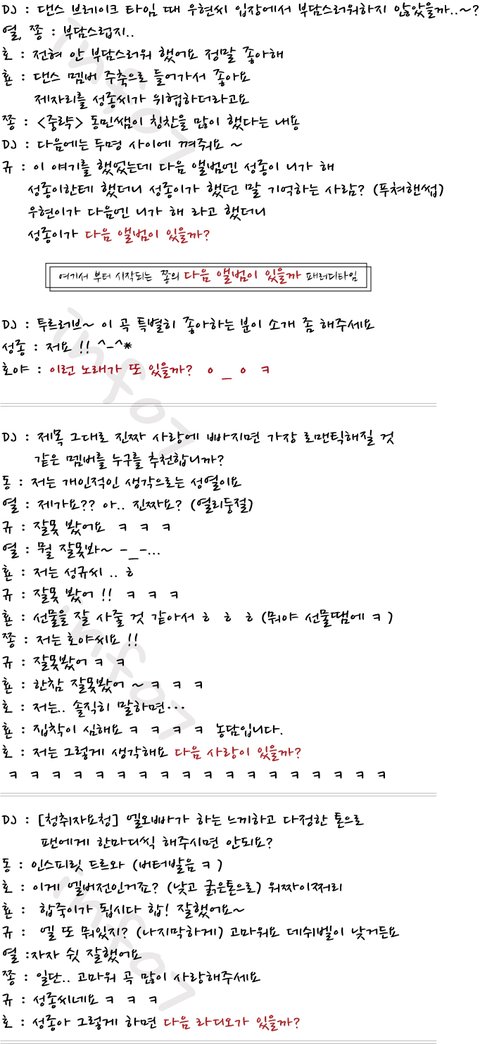 DJ : 댄스 브레이크 타임 때 우현씨 입장에서 부담스러워하지 않았을까..~?
열, 쫑 : 부담스럽지..
호 : 전혀 안 부담스러워 했어요 정말 좋아해
횬 : 댄스 멤버 주축으로 들어가서 좋아요
제자리를 성종씨가 위협하더라고요
쫑 : <중략> 동민쌤이 칭찬을 많이 했다는 내용
DJ : 다음에는 두명 사이에 껴줘요 ~
규 : 이 얘기를 했었는데 다음 앨범엔 성종이 니가 해
성종이한테 했더니 성종이가 했던 말 기억하는 사람? (푸쳐핸썹)
우현이가 다음엔 니가 해 라고 했더니
성종이가 다음 앨범이 있을까?
여기서 부터 시작되는 쫑의 다음 앨범이 있을까 패러디타임
DJ : 투르러브~ 이 곡 특별히 좋아하는 분이 소개 좀 해주세요
성종 : 저요 !! ^-^*
호야 : 이런 노래가 또 있을까? ㅇ _ ㅇ ㅋ
DJ : 제목 그대로 진짜 사랑에 빠지면 가장 로맨틱해질 것
같은 멤버를 누구를 추천합니까?
동 : 저는 개인적인 생각으로는 성열이요
열 : 제가요?? 아.. 진짜요? (열리둥절)
규 : 잘못 봤어요 ㅋ ㅋ ㅋ
열 : 뭘 잘못봐~ -_-...
횬 : 저는 성규씨 .. ㅎ
규 : 잘못 봤어 !! ㅋ ㅋ ㅋ
횬 : 선물을 잘 사줄 것 같아서 ㅎ ㅎ ㅎ (뭐야 선물땜에 ㅋ )
쫑 : 저는 호야씨요 !!
규 : 잘못봤어 ㅋ ㅋ
횬 : 한참 잘못봤어 ~ ㅋ ㅋ ㅋ
호 : 저는.. 솔직히 말하면...
횬 : 집착이 심해요 ㅋ ㅋ ㅋ ㅋ 농담입니다.
호 : 저는 그렇게 생각해요 다음 사랑이 있을까?
ㅋ ㅋ ㅋ ㅋ ㅋ ㅋ ㅋ ㅋ ㅋ ㅋ ㅋ ㅋ ㅋ ㅋ ㅋ ㅋ ㅋ
DJ : [청취자요청] 엘오빠가 하는 느끼하고 다정한 톤으로
팬에게 한마디씩 해주시면 안되요?
동 : 인스피릿 드르와 (버터발음 ㅋ )
호 : 이게 엘버전인거죠? (낮고 굵은톤으로) 위짜이쩌리
횬 : 합죽이가 됩시다 합! 잘했어요~
규 : 엘 또 뭐있지? (나지막하게) 고마워요 데쉬벨이 낮거든요
열 :자자 쉿 잘했어요
쫑 : 일단.. 고마워 곡 많이 사랑해주세요
규 : 성종씨네요 ㅋ ㅋ ㅋ
호 : 성종아 그렇게 하면 다음 라디오가 있을까?